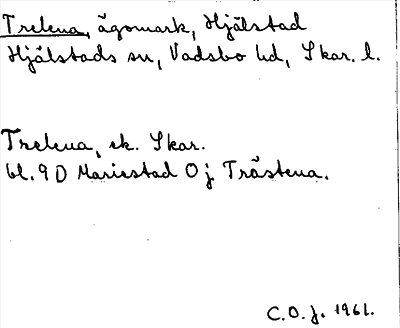 Trelena, ägomark, Hjälstad
Hjälstads sn, Vadsbo hd, Skar. l.
Trelena, ek. Skar.
bl. 9 D Mariestad O j Trästena.
C.O.J. 1961.